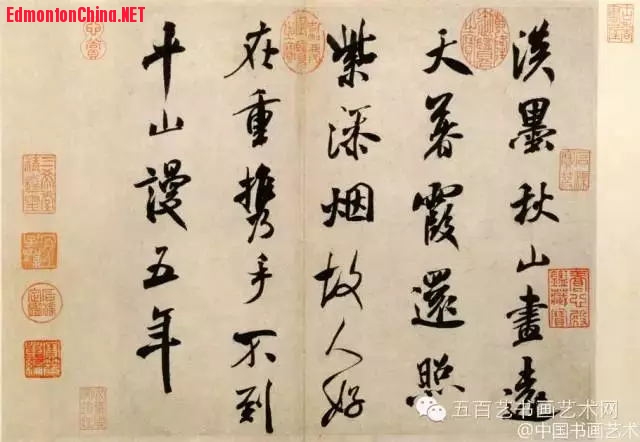 EdmontonChina.NET
淡墨秋山畫遠
天暮霞還照
紫添烟故人好
在重携手不到
平山謾五年
五百艺书画艺术网
@中国书画艺术